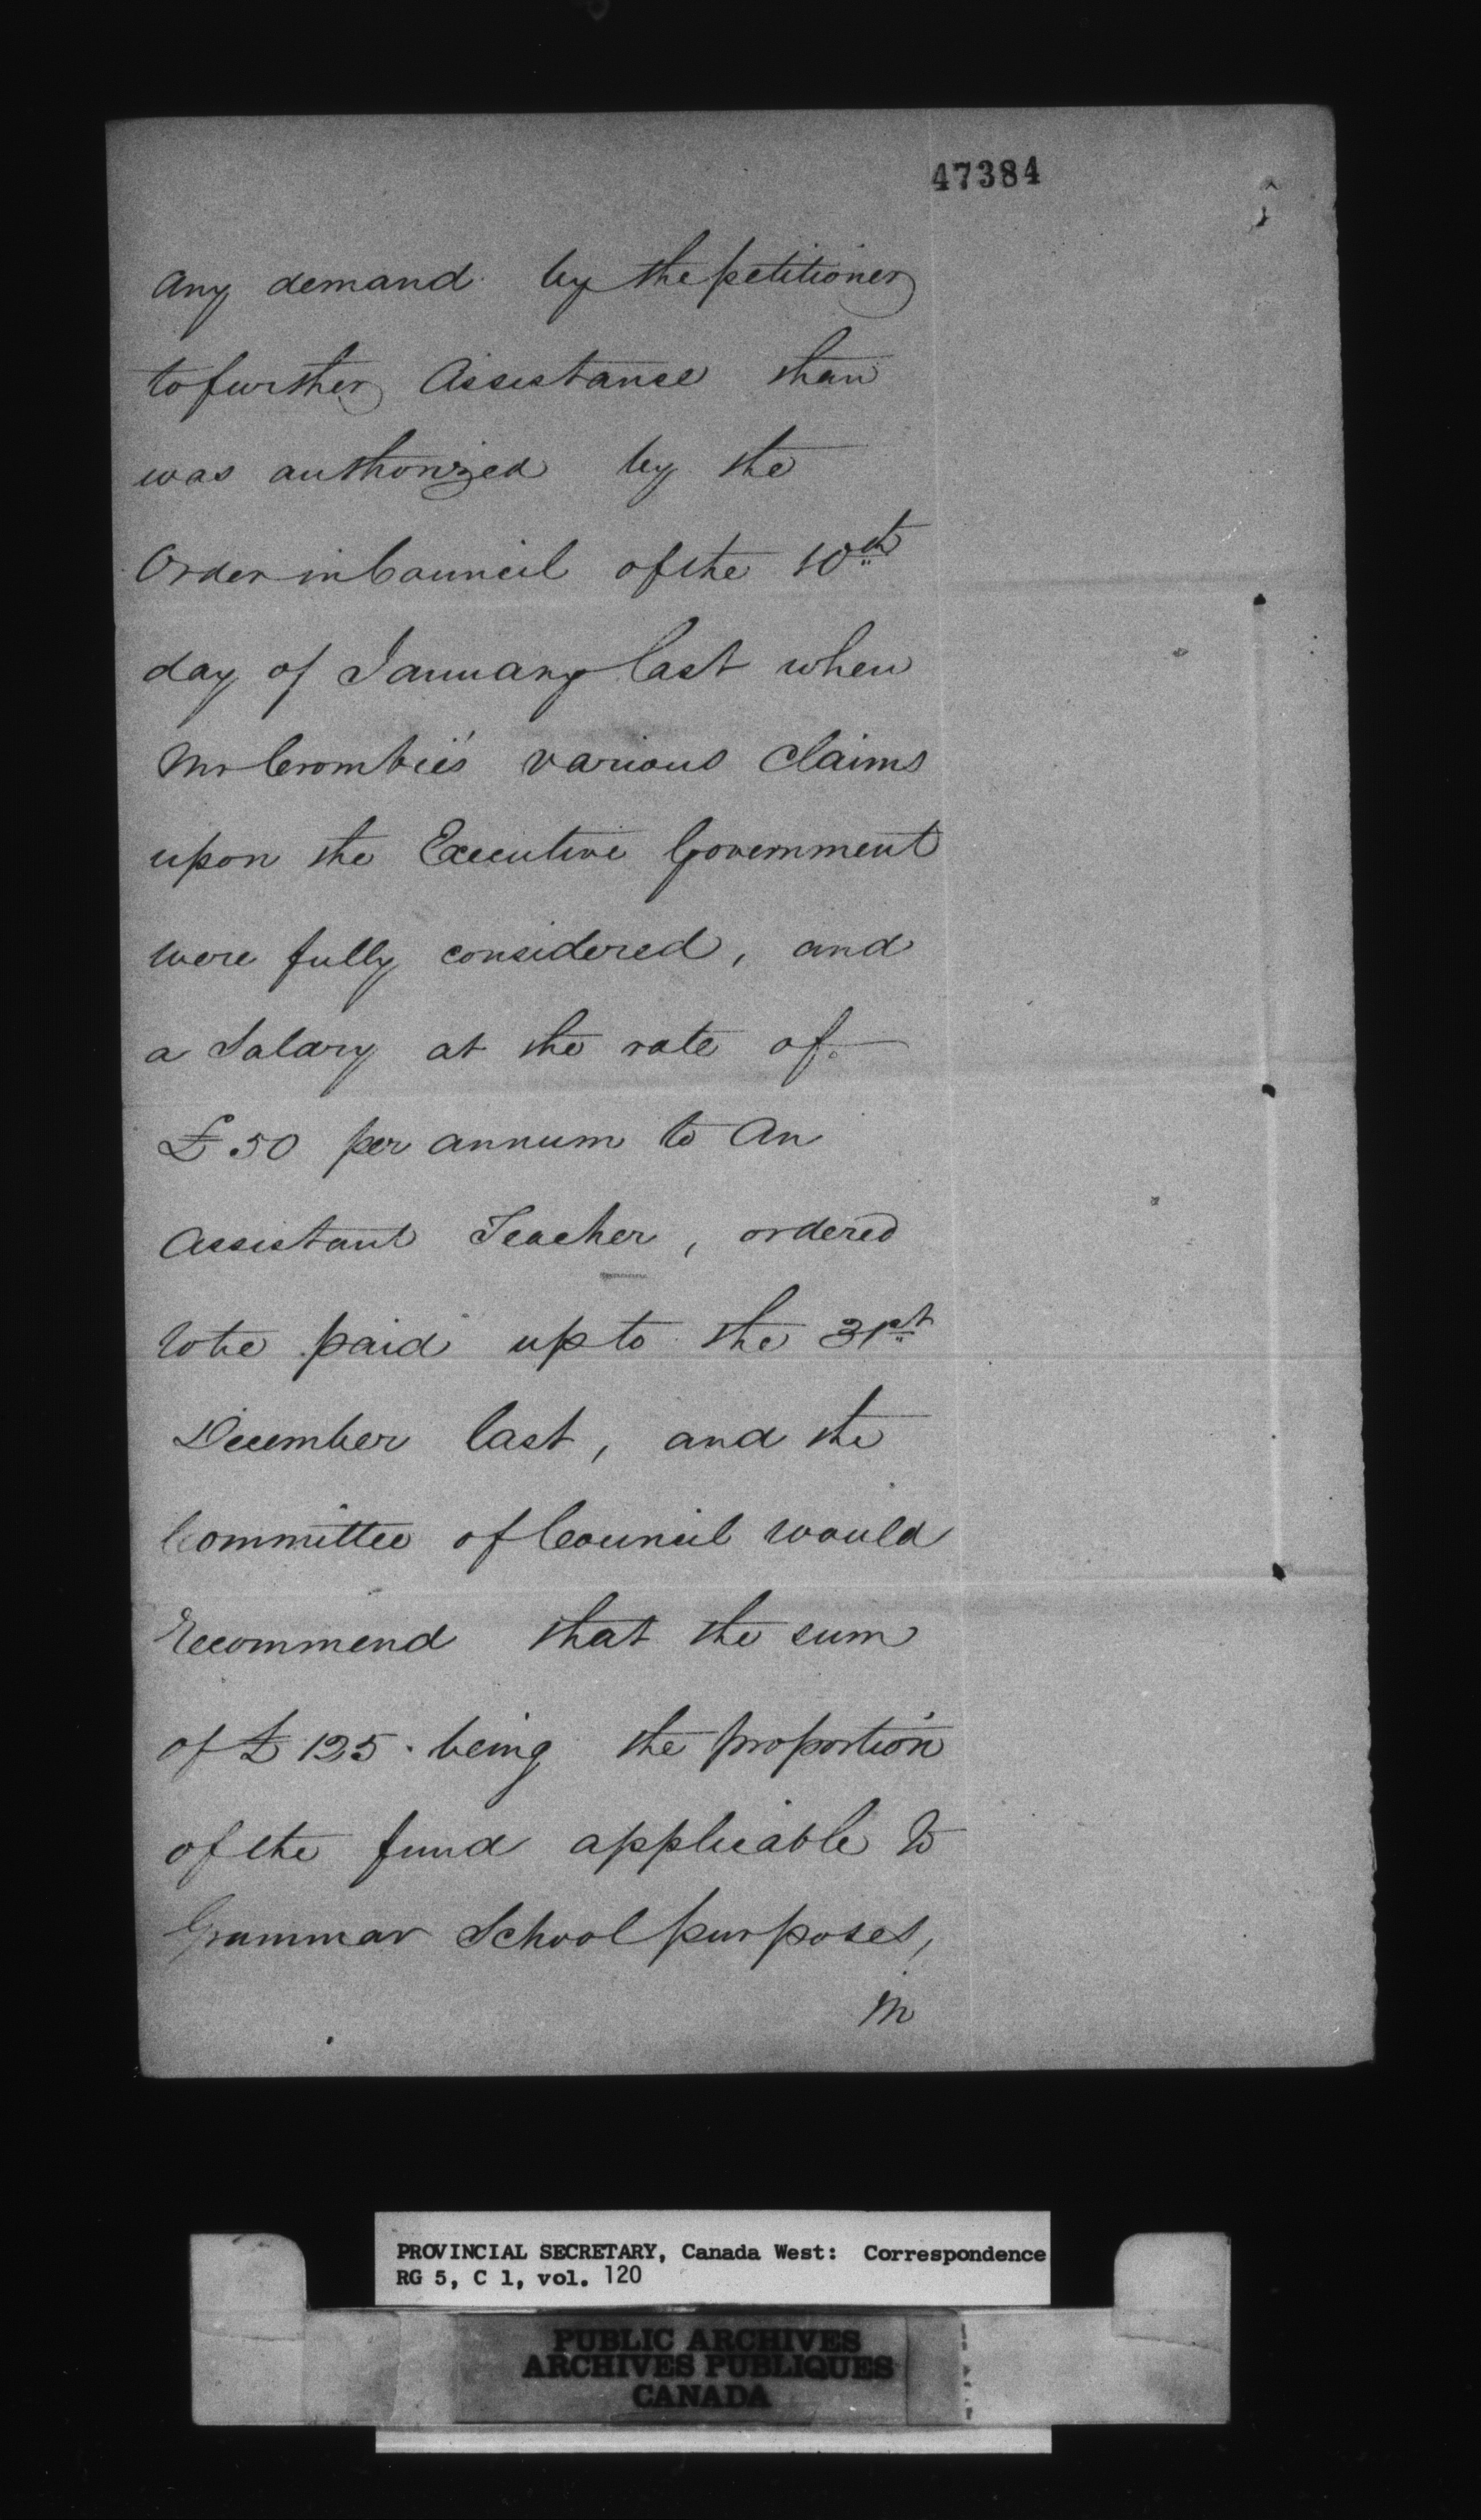 47384
any demand by the petitioner
to further Assistance than
was authorized by the
Order in Council of the 10th
day of January last when
Mr Crombie's various claims
upon the Executive Government
were fully considered, and
a Salary at the rate of
£50 per annum to an
Assistant Teacher, ordered
to be paid up to the 31st
December last, and the
Committee of Council would
Recommend that the sum
of £125. being the proportion
of the fund applicable to
Grammar School purposes,
in
PROVINCIAL SECRETARY, Canada West: Correspondence
RG 5, C 1, vol. 120
PUBLIC ARCHIVES
ARCHIVES PUBLIQUES
CANADA